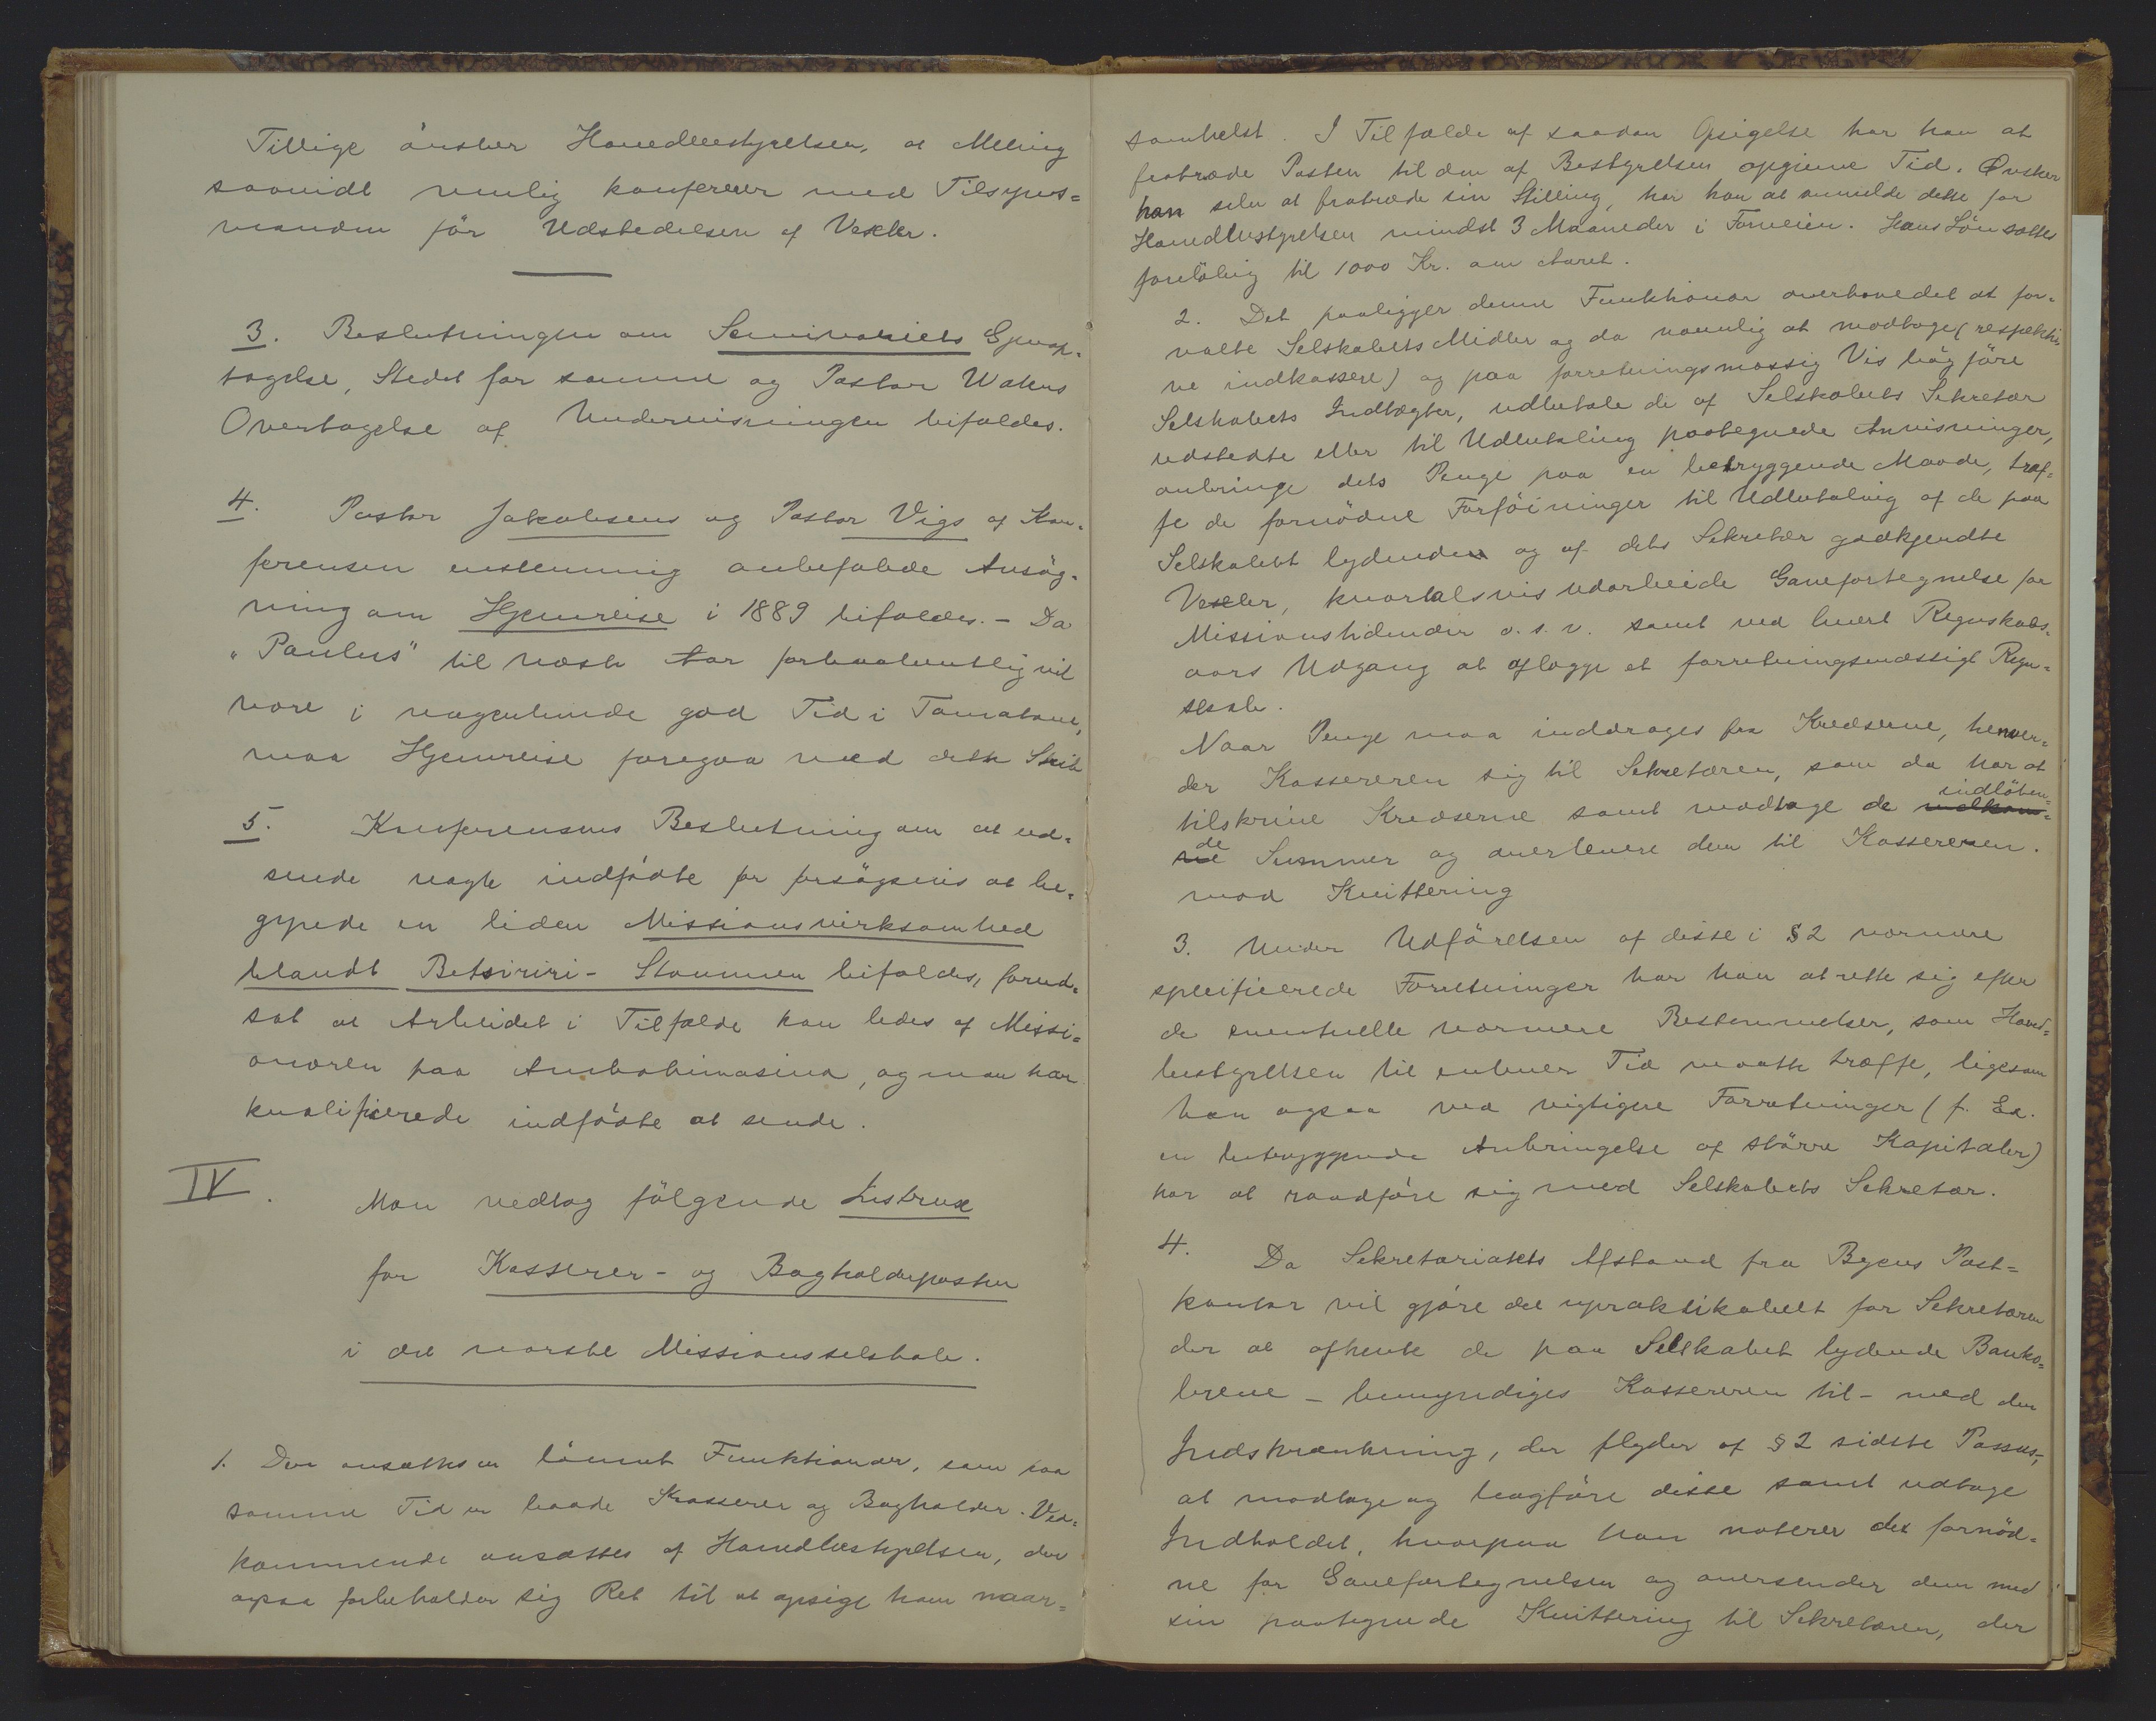 Tillige önsker Hovedbestyrelsen, at Meling
saavidt mulig konfererer med Tilsyns=
manden för Udstedelsen af Vexler.
3. Beslutningen om Seminariets Gjenop=
tagelse, Stedet for samme og Pastor Walens
Overtagelse af Undervisningen bifaldes.
4. Pastor Jakobsens og Pastor Vigs af Kon=
ferensen enstemmig anbefalede Ansög=
ning om Hjemreise i 1889 bifaldes. - Da
"Paulus" til næste Aar forhaabentlig vil
være i nogenlunde god Tid i Tamatave,
maa Hjemreise foregaa med dette Skib
5. Konferensens Beslutning om at ud=
sende nogle indfödte for forsögsvis at be=
gynde en liden Missionsvirksomhed
blandt Betsiriri-Stammen bifaldes, forud=
sat at Arbeidet i Tilfælde kan ledes af Missi=
onæren paa Ambohimasina, og man har
kvalificerede indfödte at sende.
IV. Man vedtog fölgende Instrux
for Kasserer- og Bogholderposten
i det norske Missionsselskab.
1. Der ansættes en lönnet Funktionær, som paa
samme Tid er baade Kasserer og Bogholder. Ved=
kommende ansættes af Hovedbestyrelsen, der
ogsaa forbeholder sig Ret til at opsige ham naar=
somhelst. I Tilfælde af saadan Opsigelse har han at
fratræde Posten til den af Bestyrelsen opgivne Tid. Önsker
han selv at fratræde sin Stilling, har han at anmelde dette for
Hovedbestyrelsen mindst 3 Maaneder i Forveien. Hans Lön sættes
forelöbig til 1000 Kr. om Aaret.
2. Det paaligger denne Funktionær overhovedet at for=
valte Selskabets Midler og da navnlig at modtage (respekti=
ve indkassere) og paa forretningsmæssig Vis bogföre
Selskabets Indtægter, udbetale de af Selskabets Sekretær
udstedte eller til Udbetaling paategnede Anvisninger,
anbringe dets Penge paa en betryggende Maade, træf=
fe de fornödne Forföininger til Udbetaling af de paa
Selskabet lydende og af dets Sekretær godkjendte
Vexler, kvartalsvis udarbeide Gavefortegnelse for
Missionstidender o. s. v. samt ved hvert Regnskabs=
aars Udgang at aflægge et forretningsmæssigt Regn=
skab.
Naar Penge maa inddrages fra Kredserne, henven=
der Kassereren sig til Sekretæren, som da har at
tilskrive Kredserne samt modtage de indlöben=
de Summer og overlevere dem til Kassereren.
mod Kvittering
3. Under Udförelsen af disse i § 2 nærmere
specificerede Forretninger har han at rette sig efter
de eventuelle nærmere Bestemmelser, som Hoved=
bestyrelsen til enhver Tid maatte træffe, ligesom
han ogsaa ved vigtigere Forretninger (f. Ex.
en betryggende Anbringelse af större Kapitaler)
har at raadföre sig med Selskabets Sekretær.
4. Da Sekretariatets Afstand fra Byens Post=
kontor vil gjöre det upraktikabelt for Sekretæren
der at afhente de paa Selskabet lydende Banko=
breve - bemyndiges Kassereren til - med den
Indskrænkning, der flyder af § 2 sidste Passus,-
at modtage og bogföre disse samt udtage
Indholdet, hvorpaa han noterer det fornöd=
ne for Gavefortegnelsen og oversender dem med
sin paategnede Kvittering til Sekretæren, der